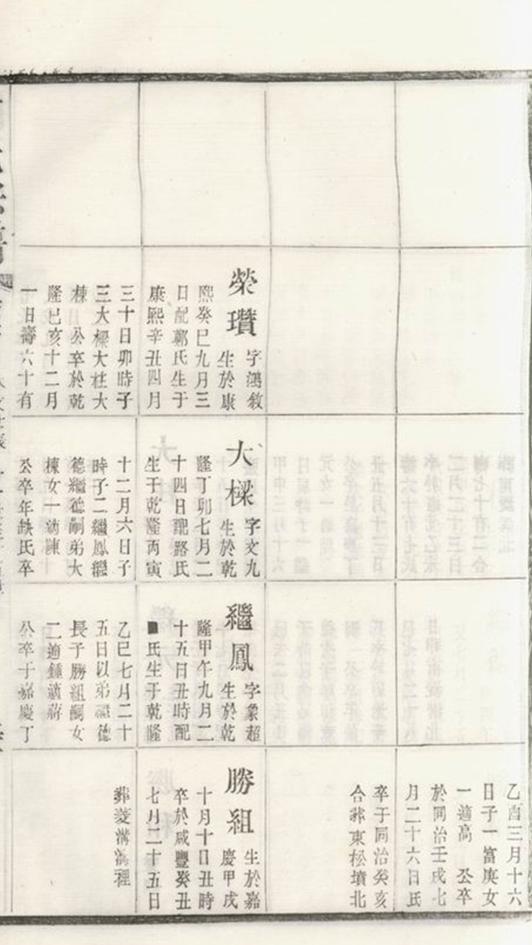 榮瓚 字鴻敘
生於康
熙癸巳九月三
日配鄭氏生于
康熙辛丑四月
三十日卯時子
三大樑大柱大
棟 公卒於乾
隆己亥十二月
一日壽六十有
大樑 字文九
生於乾
隆丁卯七月二
十四日配路氏
生于乾隆丙寅
十二月六日子
時子二繼鳳繼
德繼德嗣弟大
棟女一幼陳
公卒年缺氏卒
繼鳳 字象超
生於乾
隆甲午九月二
十五日丑時配
■氏生于乾隆
乙巳七月二十
五日以弟繼德
長子勝組嗣女
二適鍾適蔣
公卒于嘉慶丁
乙酉三月十六
日子一富庚女
一適高 公卒
於同治壬戌七
月二十六日氏
卒于同治癸亥
合葬東松墳北
勝組 生於嘉
慶甲戌
十月十日丑時
卒於咸豐癸丑
七月二十五日
葬菱溝溝裡